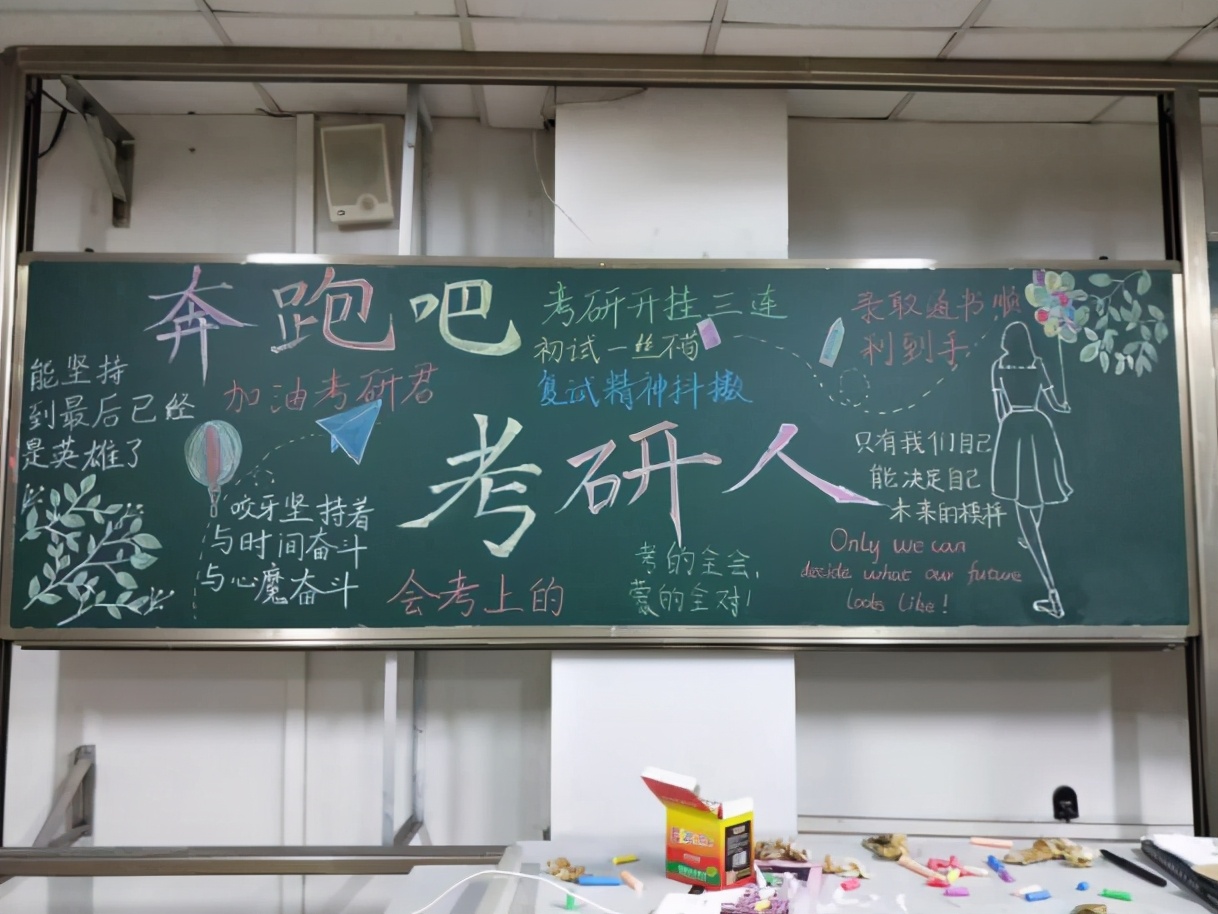 奔跑吧
能坚持
到最后已经
是英雄了
加油考研君
考研开挂三连
初试一丝不苟
复试精神抖擞
录取通书顺
利到手
考研人
咬牙坚持着
与时间奋斗
与心魔奋斗
会考上的
考的全会,
蒙的全对!
只有我们自己
能决定自己
未来的模样
Only we can
decide what our future
looks like!